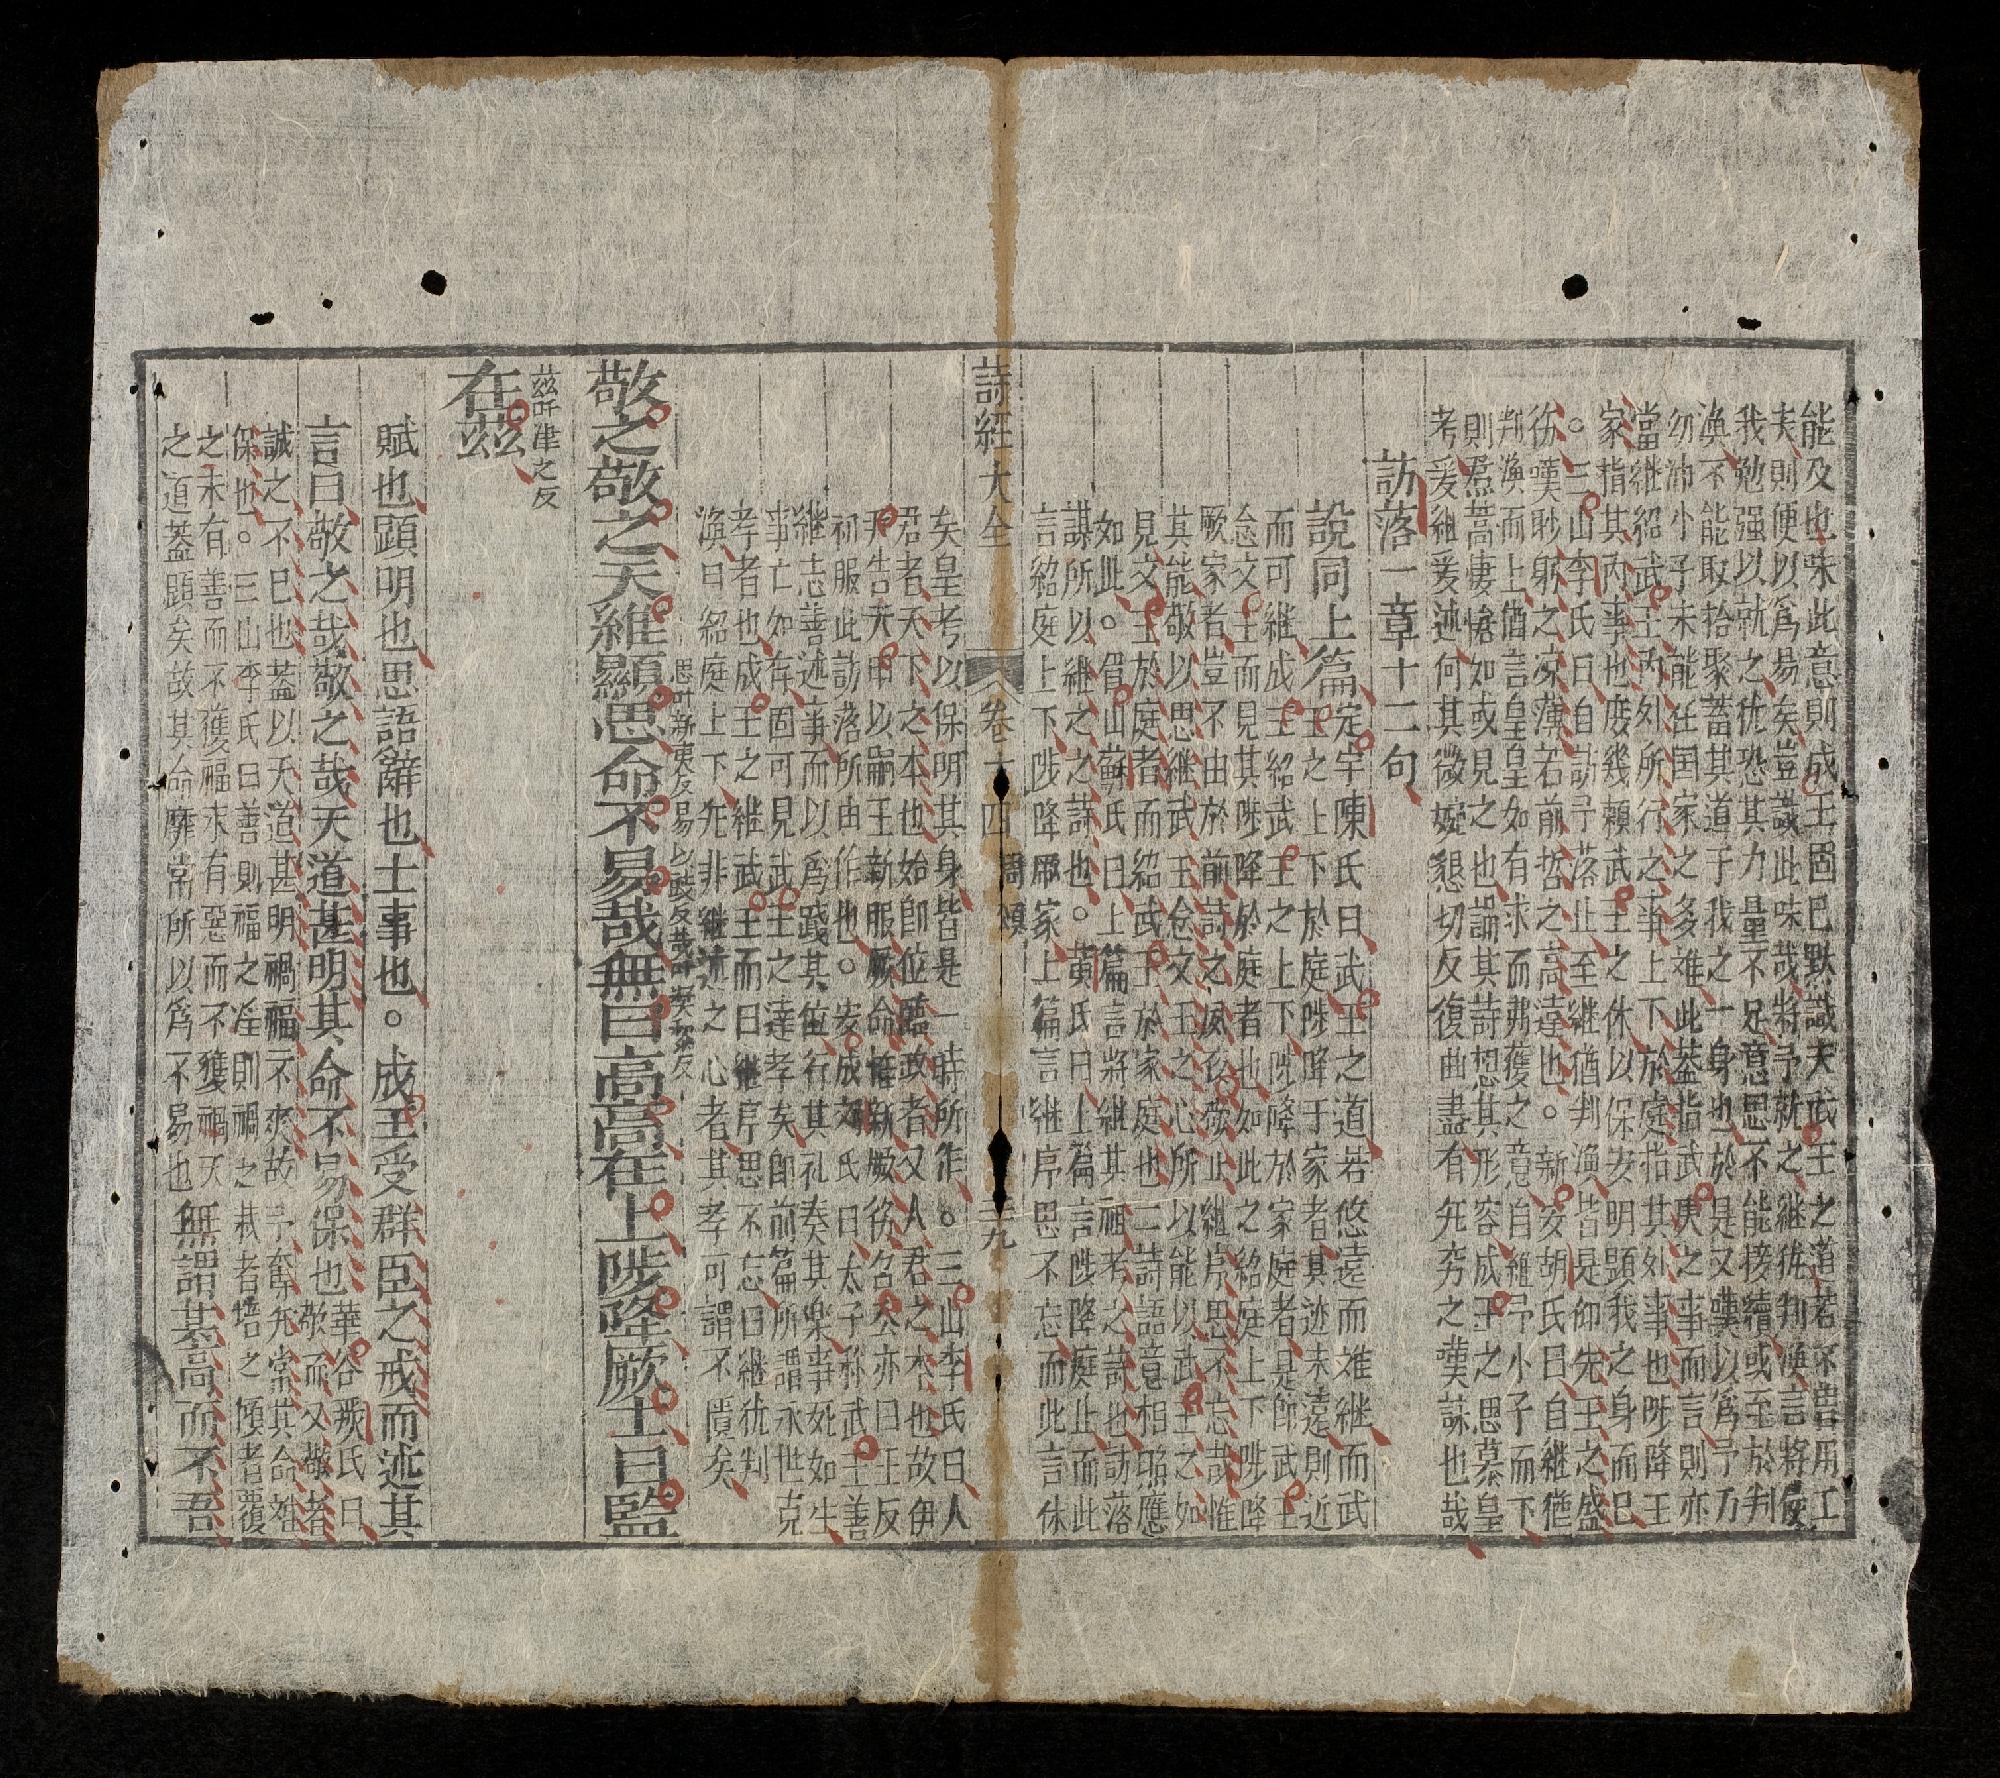 能及也味此意則成王固已默識夫武王之道若不曽用工
夫則便以爲易矣豈識此味哉將予就之繼猶判渙言將使
我勉强以就之猶恐其力量不足意思不能接續或至於判
渙不能収拾聚蓄其道于我之一身也於是又嘆以爲予乃
幼冲小子未能任国家之多难此蓋指武庚之事而言則亦
當継紹武王内外所行之事上下於庭指其外事也陟降王
家指其内事也庶幾頼武王之休以保安明顕我之身而已
○三山李氏曰自訪予落止至継猶判渙皆是仰先王之盛
徳嘆眇躬之凉薄若前哲之高遠也○新安胡氏曰自継猶
判渙而上猶言皇皇如有求而弗獲之意自維予小子而下
則焄蒿悽愴如或見之也論其詩想其形容成王之思慕皇
考爰継爰述何其微婉懇切反復曲盡有旡穷之嘆詠也哉
訪落一章十二句
說同上篇定宇陳氏曰武王之道若悠遠而难継而武
王之上下於庭陟降于家者其迹未遠則近
而可継成王紹武王之上下陟降於家庭者是即武王
念文王而見其陟降於庭者也如此之紹庭上下陟降
厥家者豈不由於前詩之夙夜敬止継序思不忘哉惟
其能敬以思継武王念文王之心所以能以武王之如
見文王於庭者而紹武王於家庭也二詩語意相聮應
如此○眉山蘇氏曰上篇言將継其祖考之詩也訪落
謀所以継之之詩也○黄氏曰上篇言陟降庭止而此
言紹庭上下陟降厥家上篇言継序思不忘而此言休
詩經大全 卷十四 周頌 三十九
矣皇考以保明其身皆是一時所作○三山李氏曰人
君者天下之本也始即位臨政者又人君之本也故伊
尹告太甲以嗣王新服厥命惟新厥徳召公亦曰王反
初服此訪落所由作也○安成刘氏曰太子称武王善
継志善述事而以爲踐其位行其礼奏其樂事死如生
事亡如存固可見武王之達孝矣即前篇所謂永世克
孝者也成王之継武王而曰継序思不忘曰継猶判
渙曰紹庭上下旡非継述之心者其孝可謂不匱矣
敬之敬之天維顯思命不易哉無曰高高在上陟降厥士日監
思叶新夷反易以豉反哉叶奨黎反
兹叶津之反
在兹
賦也顕明也思語辭也士事也○成王受群臣之戒而述其
言曰敬之哉敬之哉天道甚明其命不易保也華谷嚴氏曰
敬而又敬者
誠之不已也蓋以天道甚明禍福不爽故予奪旡常其命难
保也○三山李氏曰善則福之淫則禍之栽者培之傾者覆
之未有善而不獲福未有惡而不獲禍天
之道蓋顕矣故其命靡常所以爲不易也無謂其高而不吾